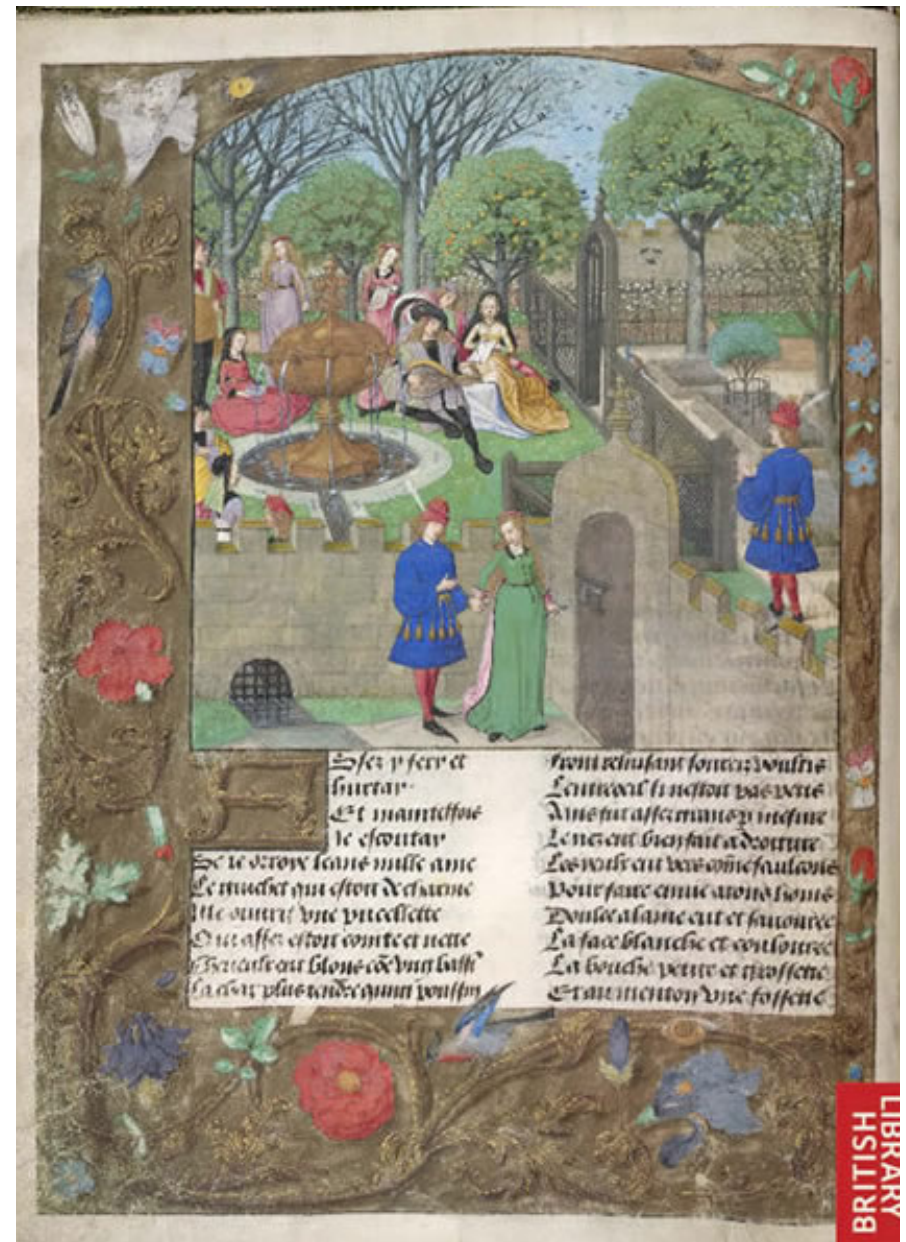 Assez y fery et
hurtay
Et maintesfois
ie escoutay
Se ie orroye leans nulle ame
Le guichet qui estoit de charme
Me ouurit vne pucellette
Qui assez estoit cointe et nette
Cheueulx eut blons cõe vng bassi
La char plus tendre quung poussin
Front reluisant sourcilz voultis
Lentreoeil si nestoit pas petis
Ains fut assez grans p mesure
Le nez eut bien fait a droiture
Les yeulx eut vers cõme faulcons
Pour faire enuie a tous homs
Doulce alaine eut et sauouree
La face blanche et coulouree
La bouche petite et grossette
Et au menton vne fossette
BRITISH
LIBRARY